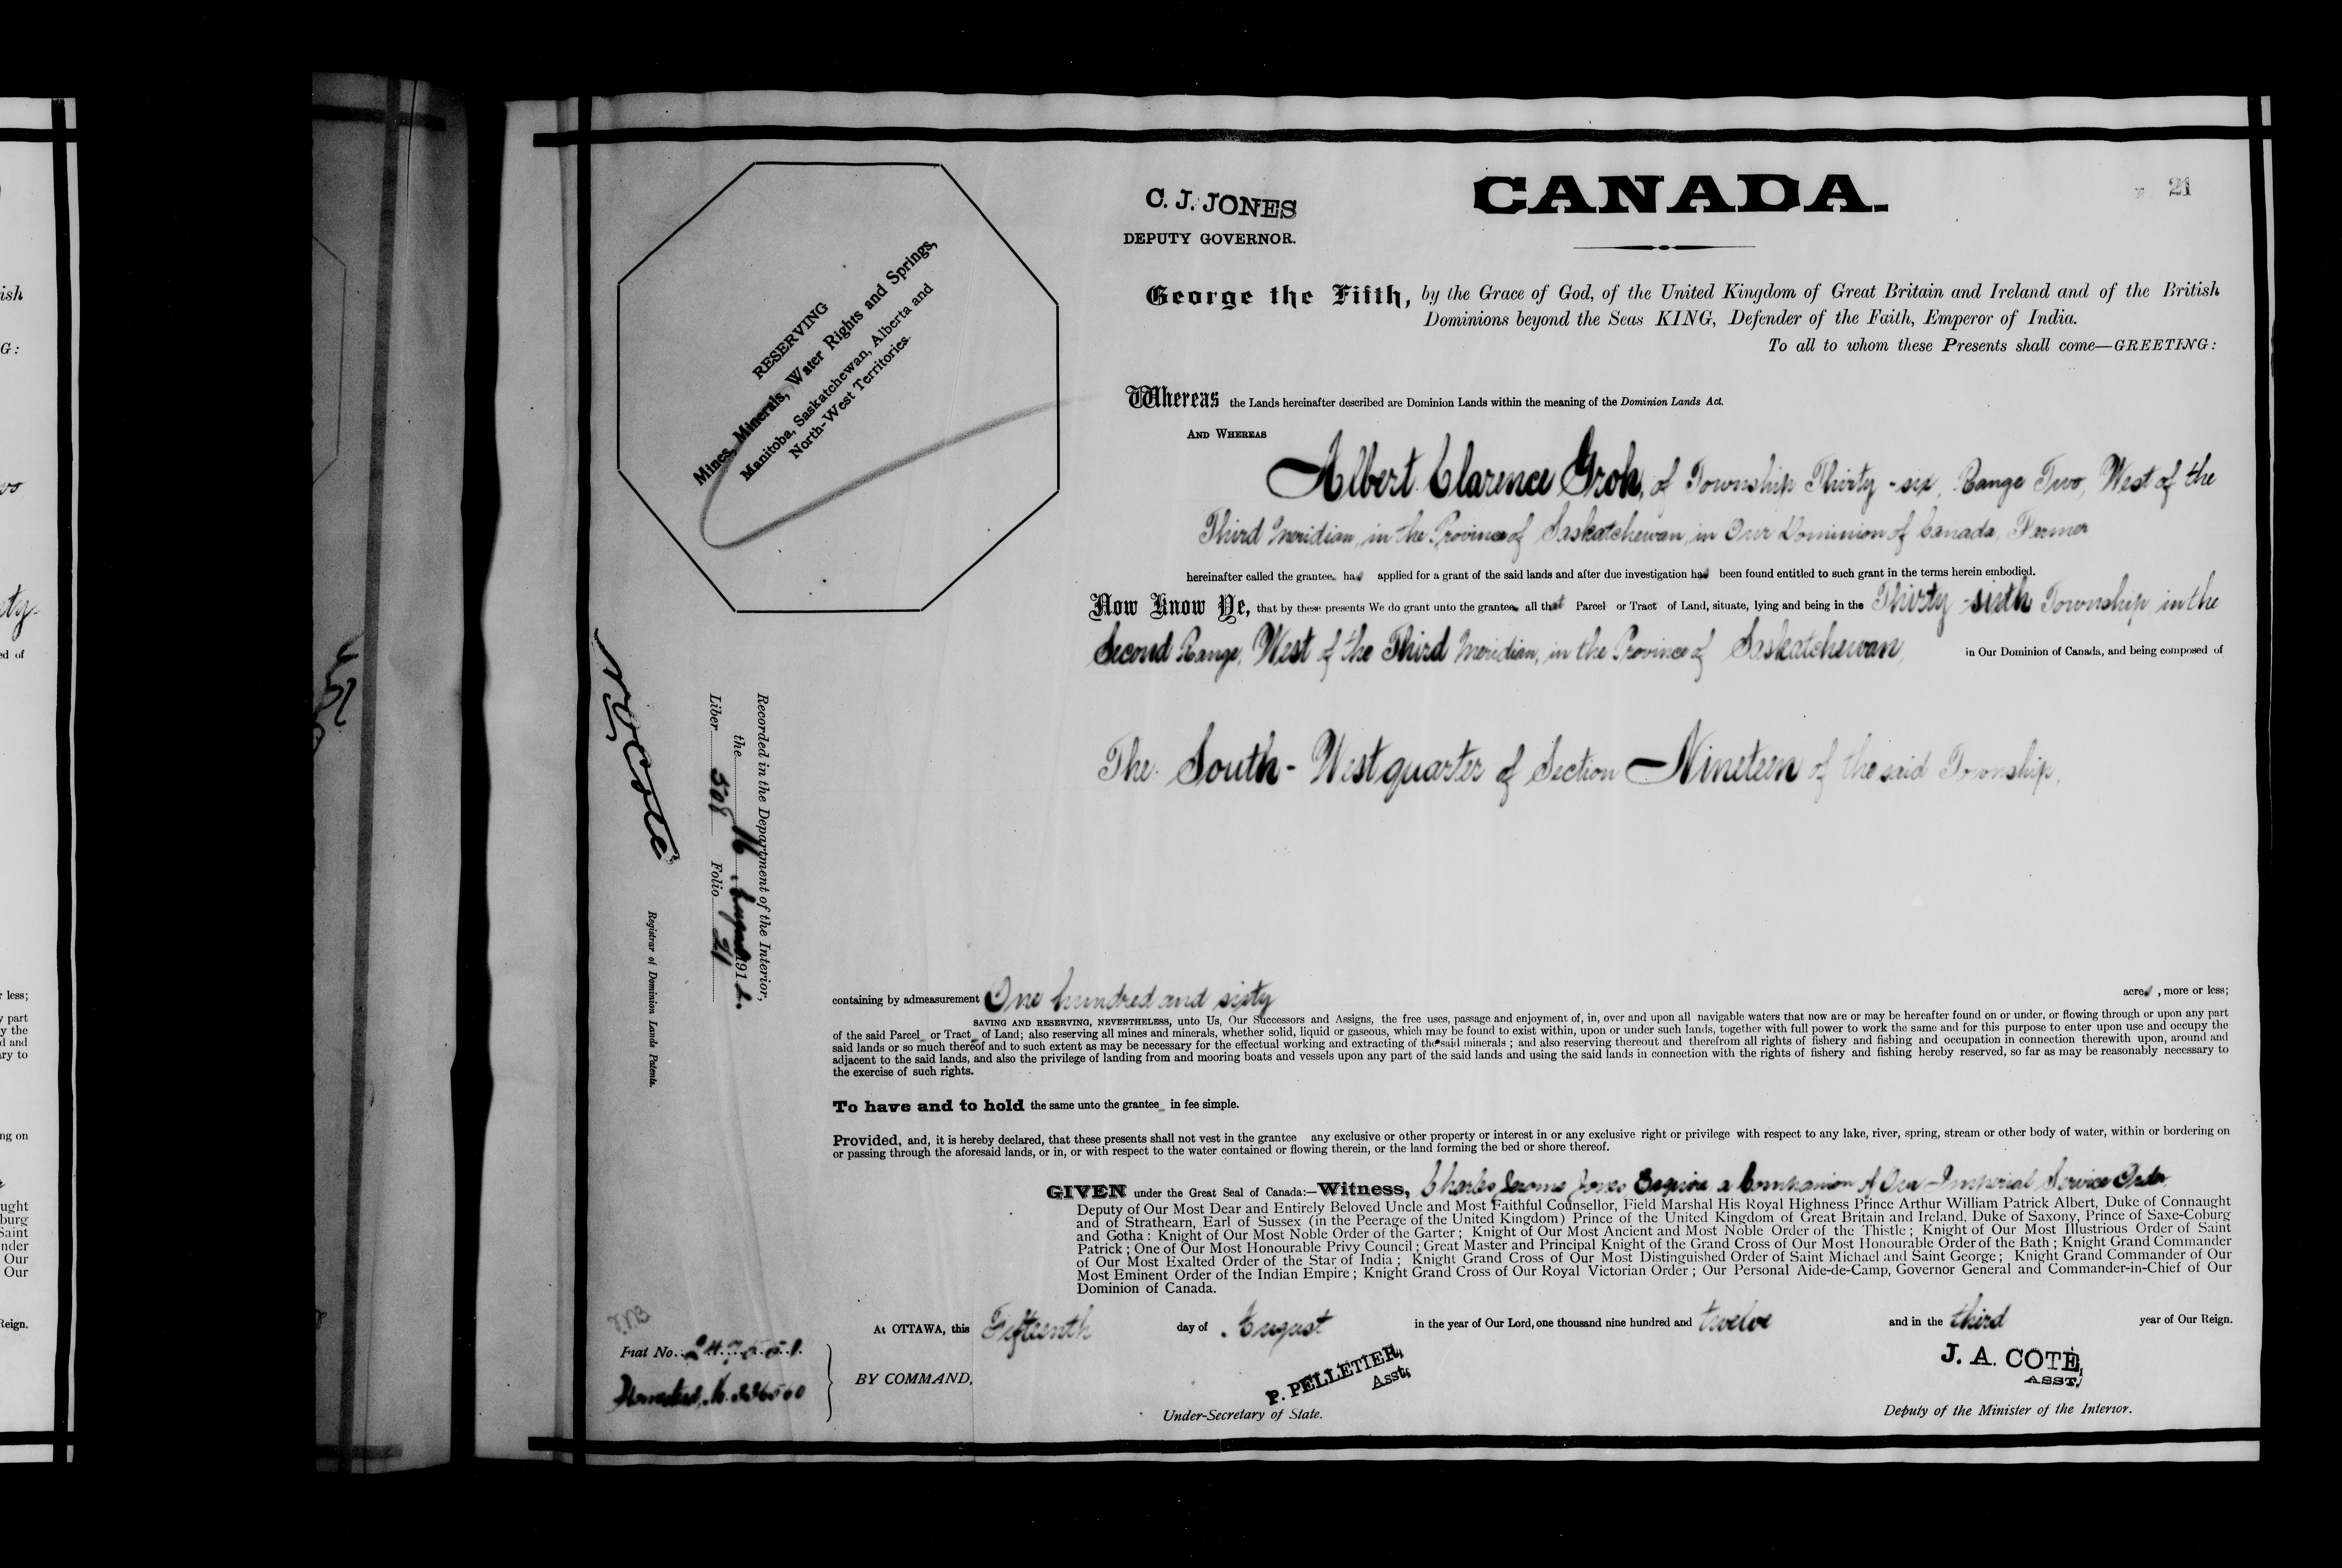 C. J. JONES
DEPUTY GOVERNOR.
CANADA.
21
George the Fifth, by the Grace of God, of the United Kingdom of Great Britain and Ireland and of the British
Dominions beyond the Seas KING, Defender of the Faith, Emperor of India.
To all to whom these Presents shall come—GREETING:
RESERVING
Mines, Minerals, Water Rights and Springs,
Manitoba, Saskatchewan, Alberta and
North-West Territories.
Whereas the Lands hereinafter described are Dominion Lands within the meaning of the Dominion Lands Act.
AND WHEREAS
Albert Clarence Groh, of Township Thirty-six, Range Two, West of the
Third Meridian, in the Province of Saskatchewan, in Our Dominion of Canada, Farmer
hereinafter called the grantee has applied for a grant of the said lands and after due investigation has been found entitled to such grant in the terms herein embodied.
Now Know Ye, that by these presents We do grant unto the grantee all that Parcel or Tract of Land, situate, lying and being in the Thirty-sixth Township, in the
Second Range, West of the Third Meridian, in the Province of Saskatchewan, in Our Dominion of Canada, and being composed of
The South-West quarter of Section Nineteen of the said Township,
Recorded in the Department of the Interior,
the 16 August 1912.
Liber 508 Folio 21
N O Coté
Registrar of Dominion Lands Patents.
containing by admeasurement One hundred and sixty acres, more or less;
SAVING AND RESERVING, NEVERTHELESS, unto Us, Our Successors and Assigns, the free uses, passage and enjoyment of, in, over and upon all navigable waters that now are or may be hereafter found on or under, or flowing through or upon any part
of the said Parcel or Tract of Land; also reserving all mines and minerals, whether solid, liquid or gaseous, which may be found to exist within, upon or under such lands, together with full power to work the same and for this purpose to enter upon use and occupy the
said lands or so much thereof and to such extent as may be necessary for the effectual working and extracting of the said minerals; and also reserving thereout and therefrom all rights of fishery and fishing and occupation in connection therewith upon, around and
adjacent to the said lands, and also the privilege of landing from and mooring boats and vessels upon any part of the said lands and using the said lands in connection with the rights of fishery and fishing hereby reserved, so far as may be reasonably necessary to
the exercise of such rights.
To have and to hold the same unto the grantee in fee simple.
Provided, and, it is hereby declared, that these presents shall not vest in the grantee any exclusive or other property or interest in or any exclusive right or privilege with respect to any lake, river, spring, stream or other body of water, within or bordering on
or passing through the aforesaid lands, or in, or with respect to the water contained or flowing therein, or the land forming the bed or shore thereof.
GIVEN under the Great Seal of Canada:—Witness, Charles Jerome Jones Esquire a Companion of Our Imperial Service Order
Deputy of Our Most Dear and Entirely Beloved Uncle and Most Faithful Counsellor, Field Marshal His Royal Highness Prince Arthur William Patrick Albert, Duke of Connaught
and of Strathearn, Earl of Sussex (in the Peerage of the United Kingdom) Prince of the United Kingdom of Great Britain and Ireland, Duke of Saxony, Prince of Saxe-Coburg
and Gotha: Knight of Our Most Noble Order of the Garter; Knight of Our Most Ancient and Most Noble Order of the Thistle; Knight of Our Most Illustrious Order of Saint
Patrick; One of Our Most Honourable Privy Council; Great Master and Principal Knight of the Grand Cross of Our Most Honourable Order of the Bath; Knight Grand Commander
of Our Most Exalted Order of the Star of India; Knight Grand Cross of Our Most Distinguished Order of Saint Michael and Saint George; Knight Grand Commander of Our
Most Eminent Order of the Indian Empire; Knight Grand Cross of Our Royal Victorian Order; Our Personal Aide-de-Camp, Governor General and Commander-in-Chief of Our
Dominion of Canada.
At OTTAWA, this Fifteenth day of August in the year of Our Lord, one thousand nine hundred and twelve and in the third year of Our Reign.
Fiat No.
BY COMMAND,
P. PELLETIER,
Asst.
Under-Secretary of State.
J. A. COTÉ,
ASST.
Deputy of the Minister of the Interior.